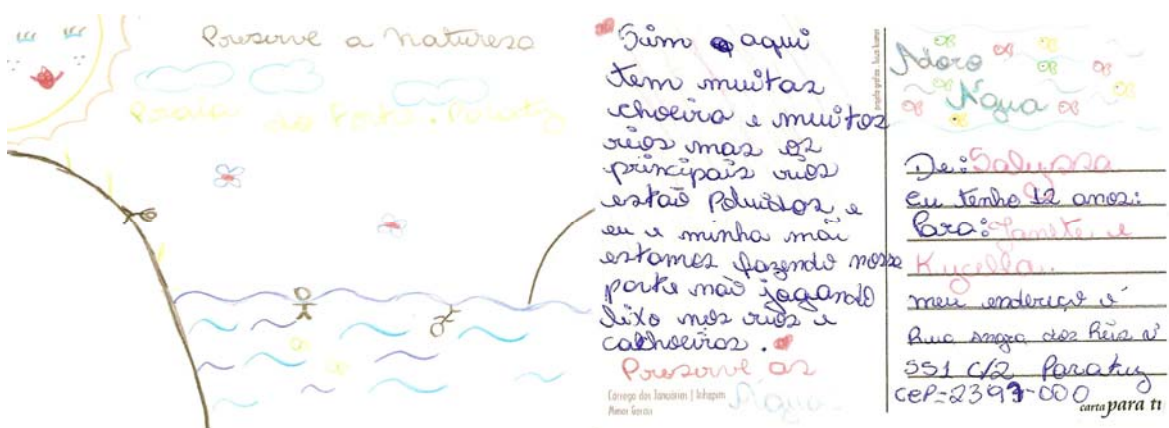 Preserve a natureza
Praia do Forte. Paraty
Sim aqui
tem muitas
choeira e muitos
rios mas os
principais rios
estaõ Poluidos e
eu e minha mãi
estamos fazendo nossa
parte não jagando
lixo nos rios e
cathoeiras.
Preserve as
Água
Córrego dos Januários | Inhapim
Minas Gerais
projeto gráfico:
Adoro
Água
De: Salyssa
eu tenho 12 anos:
Para: Janete e
Kycella.
meu endereço é
Rua angra dos Reis nº
551 C/2 Paraty
CEP=2397-000
carta para ti